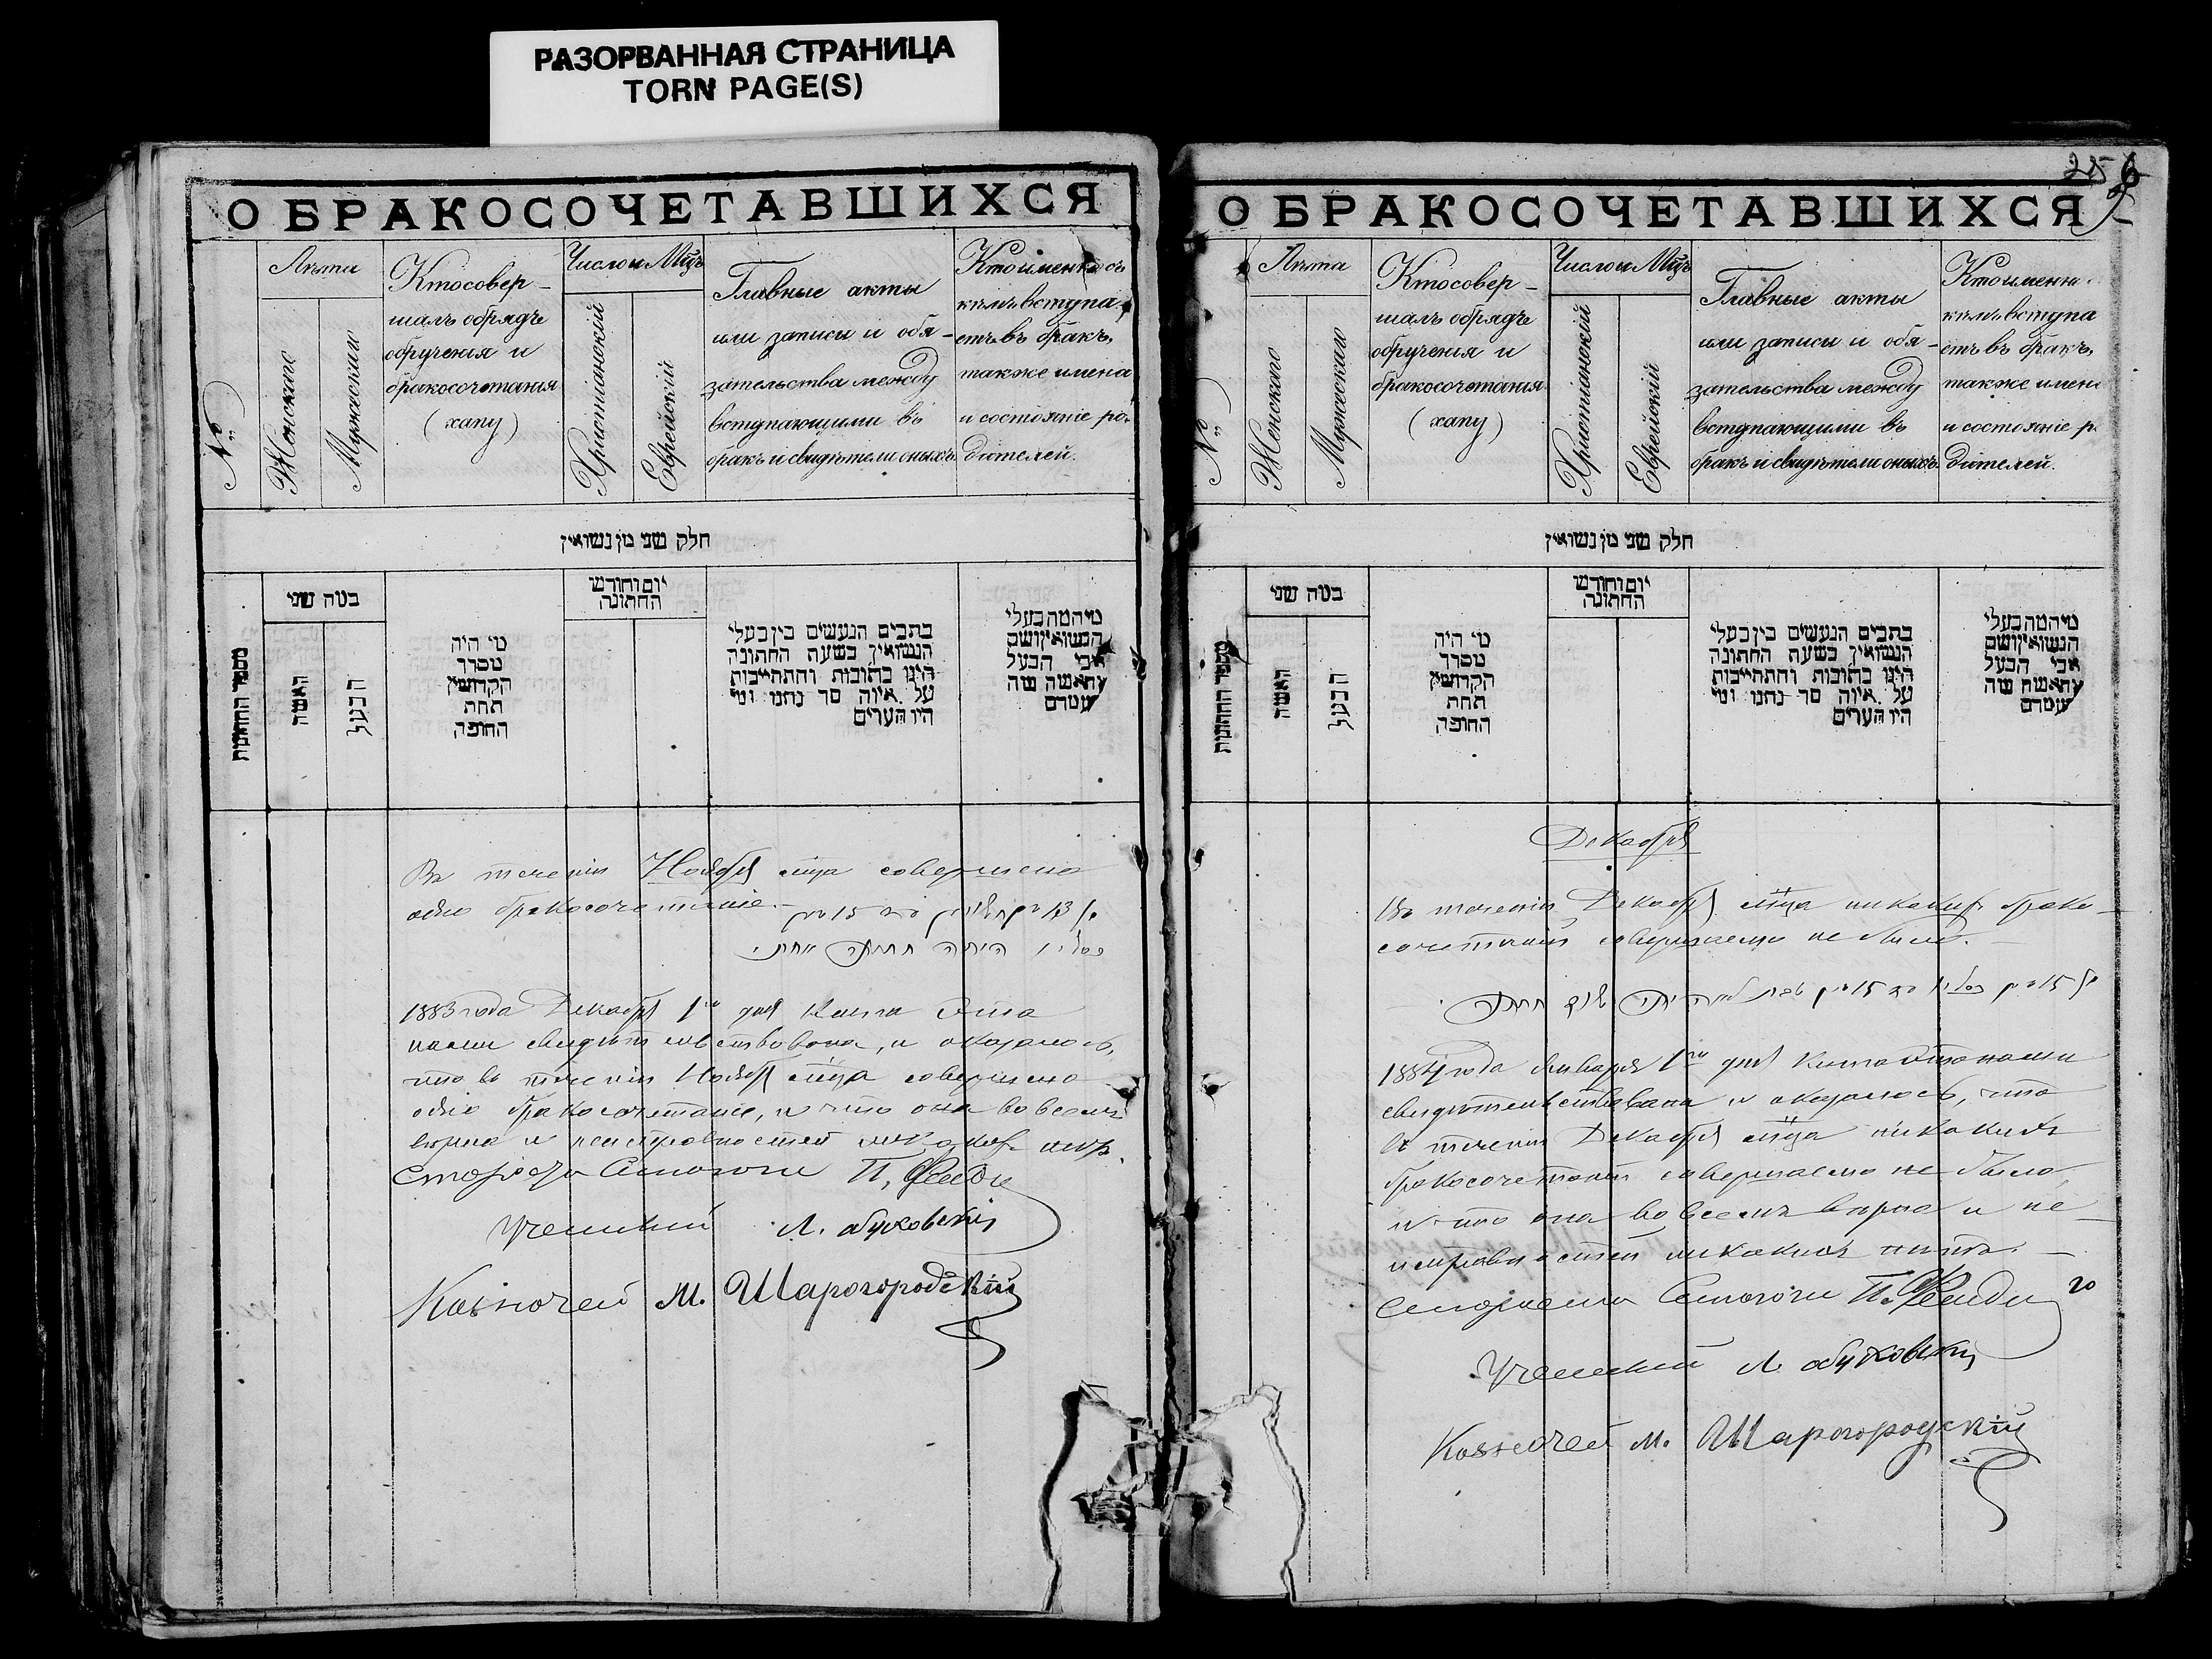 РАЗОРВАННАЯ СТРАНИЦА
TORN PAGE(S)
О БРАКОСОЧЕТАВШИХСЯ
№
Лѣта
Женскаго
Мужескаго
Кто совер-
шалъ обрядъ
обрученія и
бракосочетанія
(хапу)
Число и Мѣцъ
Христіанскій
Еврейскій
Главные акты
или записи и обя-
зательства между
вступающими въ
бракъ и свидѣтели оныхъ.
Кто именно съ
кѣмъ вступа
етъ въ бракъ,
также имена
и состояніе ро-
дителей.
חלק שני מן נשואין
מספר החתונות
במה שני
האשה
הבעל
מי היה
מסדר
הקדושין
תחת
החופה
יום וחודש
החתונה
כתבים הנעשים בין בעלי
הנשואין בשעת החתונה
היינו כתובות והתחייבות
על איזה סך נתנו ומי
היו הערים
מי המה בעלי
הנשואין ושם
אבי הבעל
והאשה ומה
מעמדם
Въ теченіи Ноября мѣца совершено
одно бракосочетаніе.
כסליו היתה חתונה אחת
1883 года Декабря 1го дня Книга эта
нами свидѣтельствована, и оказалось,
что въ теченіи Ноября мѣца совершено
одно бракосочетаніе, и что она во всемъ
вѣрна и неисправностей никакихъ нѣтъ.
Староста Синагоги П.
Ученый Л.
Казначей М. Шарогородскій
256
О БРАКОСОЧЕТАВШИХСЯ
№
Лѣта
Женскаго
Мужескаго
Кто совер-
шалъ обрядъ
обрученія и
бракосочетанія
(хапу)
Число и Мѣцъ
Христіанскій
Еврейскій
Главные акты
или записи и обя-
зательства между
вступающими въ
бракъ и свидѣтели оныхъ.
Кто именн
кѣмъ вступа
етъ въ бракъ,
также имен
и состояніе р
дителей.
חלק שני מן נשואין
מספר החתונות
במה שני
האשה
הבעל
מי היה
מסדר
הקדושין
תחת
החופה
יום וחודש
החתונה
כתבים הנעשים בין בעלי
הנשואין בשעת החתונה
היינו כתובות והתחייבות
על איזה סך נתנו ומי
היו הערים
מי המה בעלי
הנשואין ושם
אבי הבעל
והאשה ומה
מעמדם
Декабрь
Въ теченіи Декабря мѣца никакихъ брако-
сочетаній совершаемо не было.
1884 года Января 1го дня Книга эта нами
свидѣтельствована и оказалось, что
въ теченіи Декабря мѣца никакихъ
бракосочетаній совершаемо не было,
и что она во всемъ вѣрна и не-
исправностей никакихъ нѣтъ.
Староста Синагоги П.
Ученый Л.
Казначей М. Шарогородскій